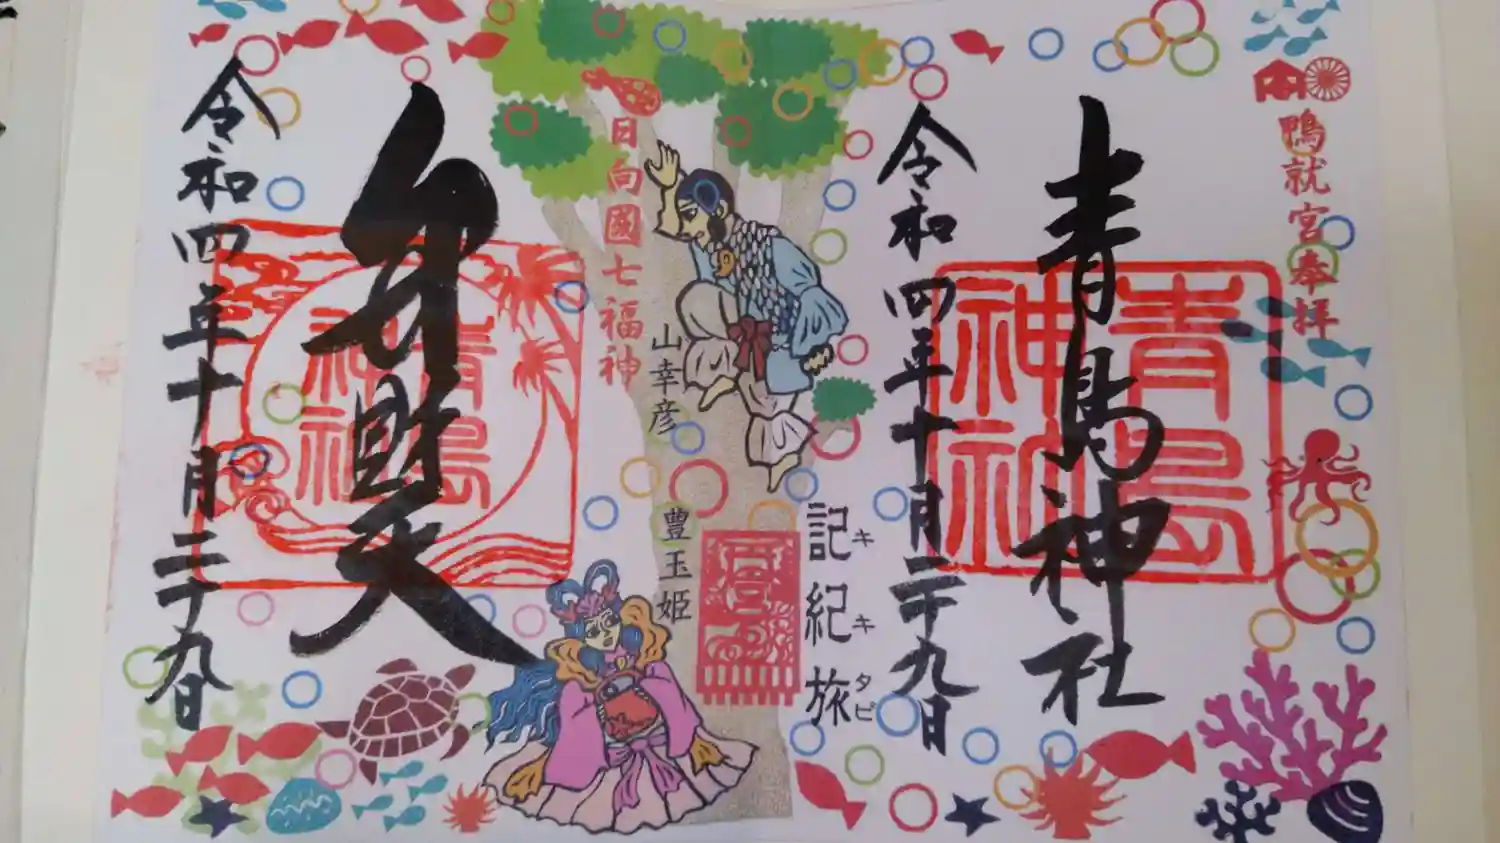 鴨就宮奉拝
青島神社
青島神社
令和四年十月二十九日
記紀旅
キキタビ
日向國七福神
山幸彦
豊玉姫
弁財天
青島神社
令和四年十月二十九日